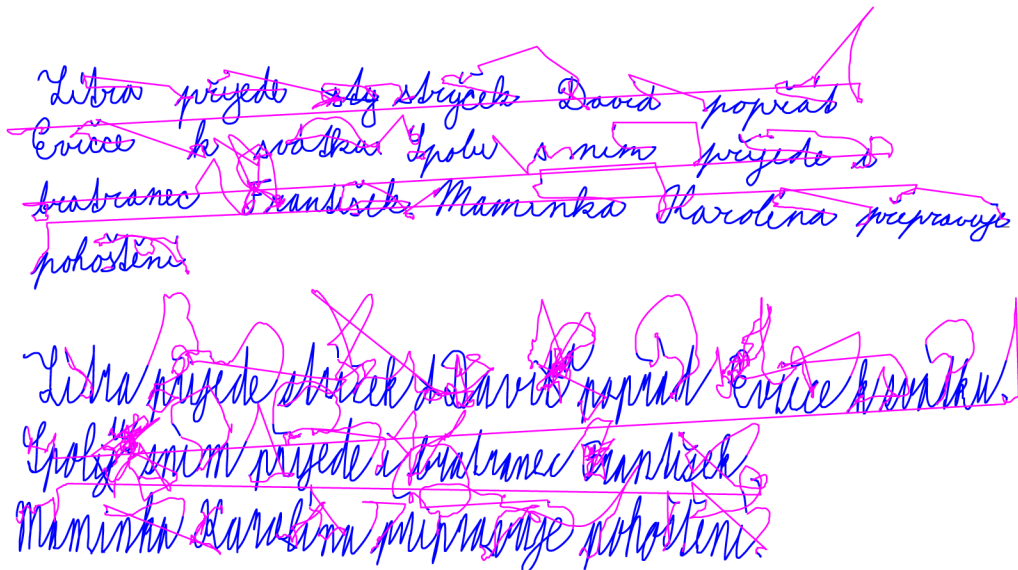 Zítra přijede stry strýček David popřát
Evičce k svátku Spolu s ním přijede s
bratranec František Maminka Karolína přepravuje
pohoštění
Zítra přijede strýček David popřád Evičce k svátku.
Spolu s ním přijede i bratranec František.
Maminka Karolína připravuje pohoštění.